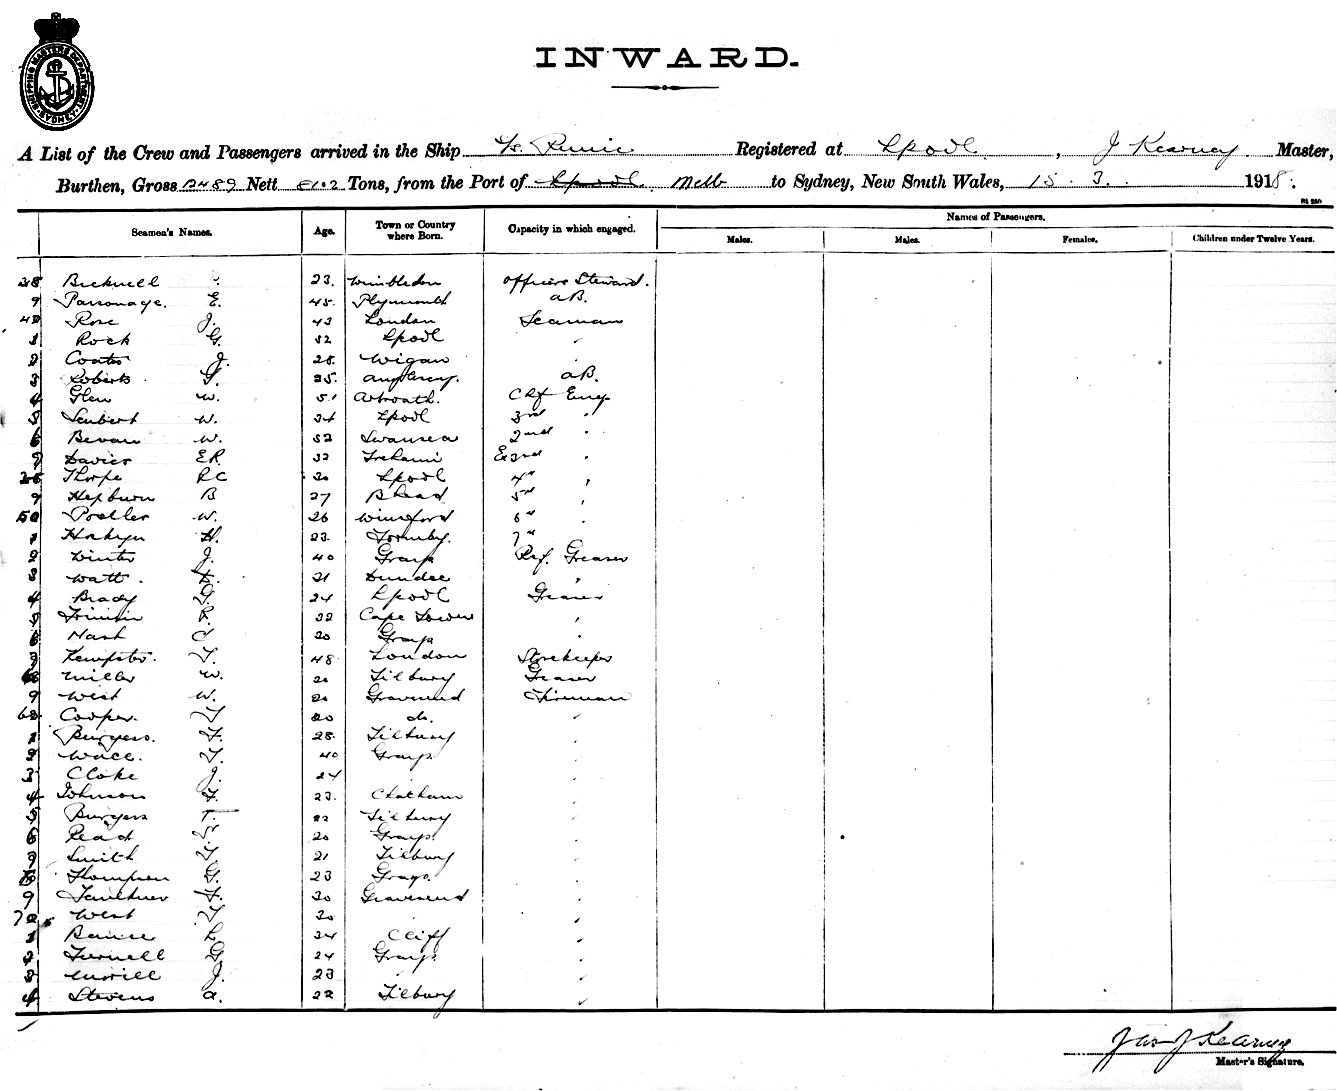 SHIPPING MASTERS DEPARTMENT SYDNEY
INWARD.
A List of the Crew and Passengers arrived in the Ship S/s. Runic Registered at Lpool, J Kearney Master,
Burthen, Gross 12489 Nett 8102 Tons, from the Port of Lpool Melb to Sydney, New South Wales, 15.3. 1918.
Seamen's Names. Age. Town or Country where Born. Capacity in which engaged. Names of Passengers.
Males. Males. Females. Children under Twelve Years.
38 Bicknell 23. Wimbledon Officers Steward.
9 Parsonage. E. 45. Plymouth AB.
40 Rose J. 43 London Seaman
1 Rock G. 52 Lpool "
2 Coates J. 28. Wigan "
3 Roberts 25. Anglesey. AB.
4 Glen W. 51 Arbroath. Chf Eng.
5 Seubert W. 34 Lpool 3rd "
6 Bevan W. 52 Swansea 2nd "
7 Davies ER. 32 "
Thorpe RC 30 Lpool 4th "
9 Hepburn B 27 B'head 5th "
50 W. 26 Winsford 6th "
1 H. 23. Formby. 7th "
2 Winter J. 40 Grays Ref. Greaser
3 Watt. 21 Dundee "
4 Brady 24 Lpool Greaser
5 R. 32 Cape Town "
6 Nash C 20 Grays "
7 Kempster. 48. London Storekeeper
8 Miller W. 20 Tilbury Greaser
9 West W. 20 Gravesend Fireman
60 Cooper. 20 do. "
1 Burgess. 28. Tilbury "
2 Wall. 40 Grays "
3 Cloke J. 24 "
4 Johnson 23. Chatham "
5 Burgess T. 22 Tilbury "
6 Read 20 Grays. "
7 Smith 21 Tilbury "
8 Thompson G. 23 Grays. "
9 Faulkner 20 Gravesend "
70 West 20 "
1 L 34 Cliff "
2 Furnell G 24 Grays "
3 J. 23 "
4 Stevens A. 22 Tilbury "
Jas J Kearney
Master's Signature.